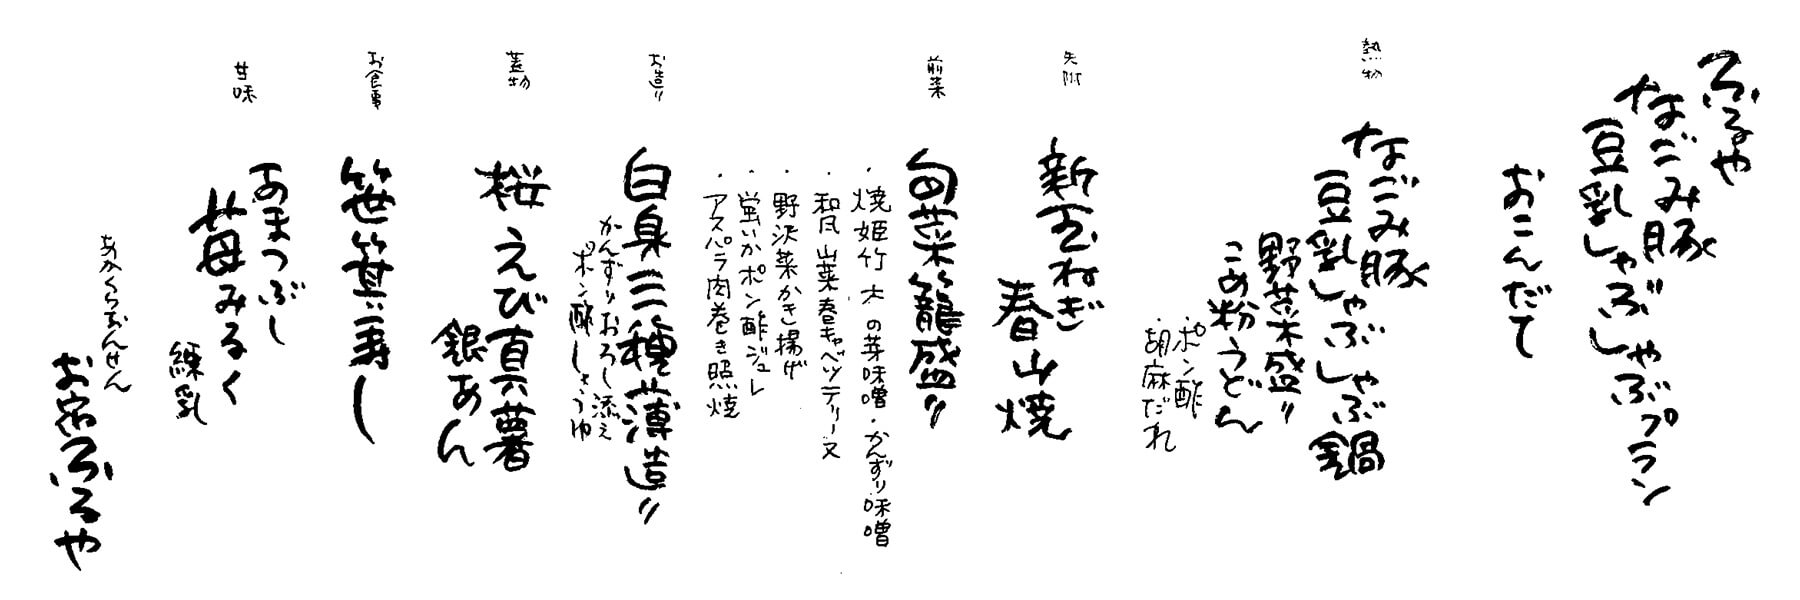 ふるや
なごみ豚
豆乳しゃぶしゃぶプラン
おこんだて
熱物
なごみ豚
豆乳しゃぶしゃぶ鍋
野菜盛り
こめ粉うどん
・ポン酢
・胡麻だれ
先附
新玉ねぎ
春山焼
前菜
旬菜籠盛り
・焼姫竹 木の芽味噌・かんずり味噌
・和風山菜春キャベツテリーヌ
・野沢菜かき揚げ
・蛍いかポン酢ジュレ
・アスパラ肉巻き照焼
お造り
白身三種薄造り
かんずりおろし添え
ポン酢しょうゆ
蓋物
桜えび真薯
銀あん
お食事
笹筍寿し
甘味
あまつぶし
苺みるく
練乳
あかくらおんせん
お宿ふるや